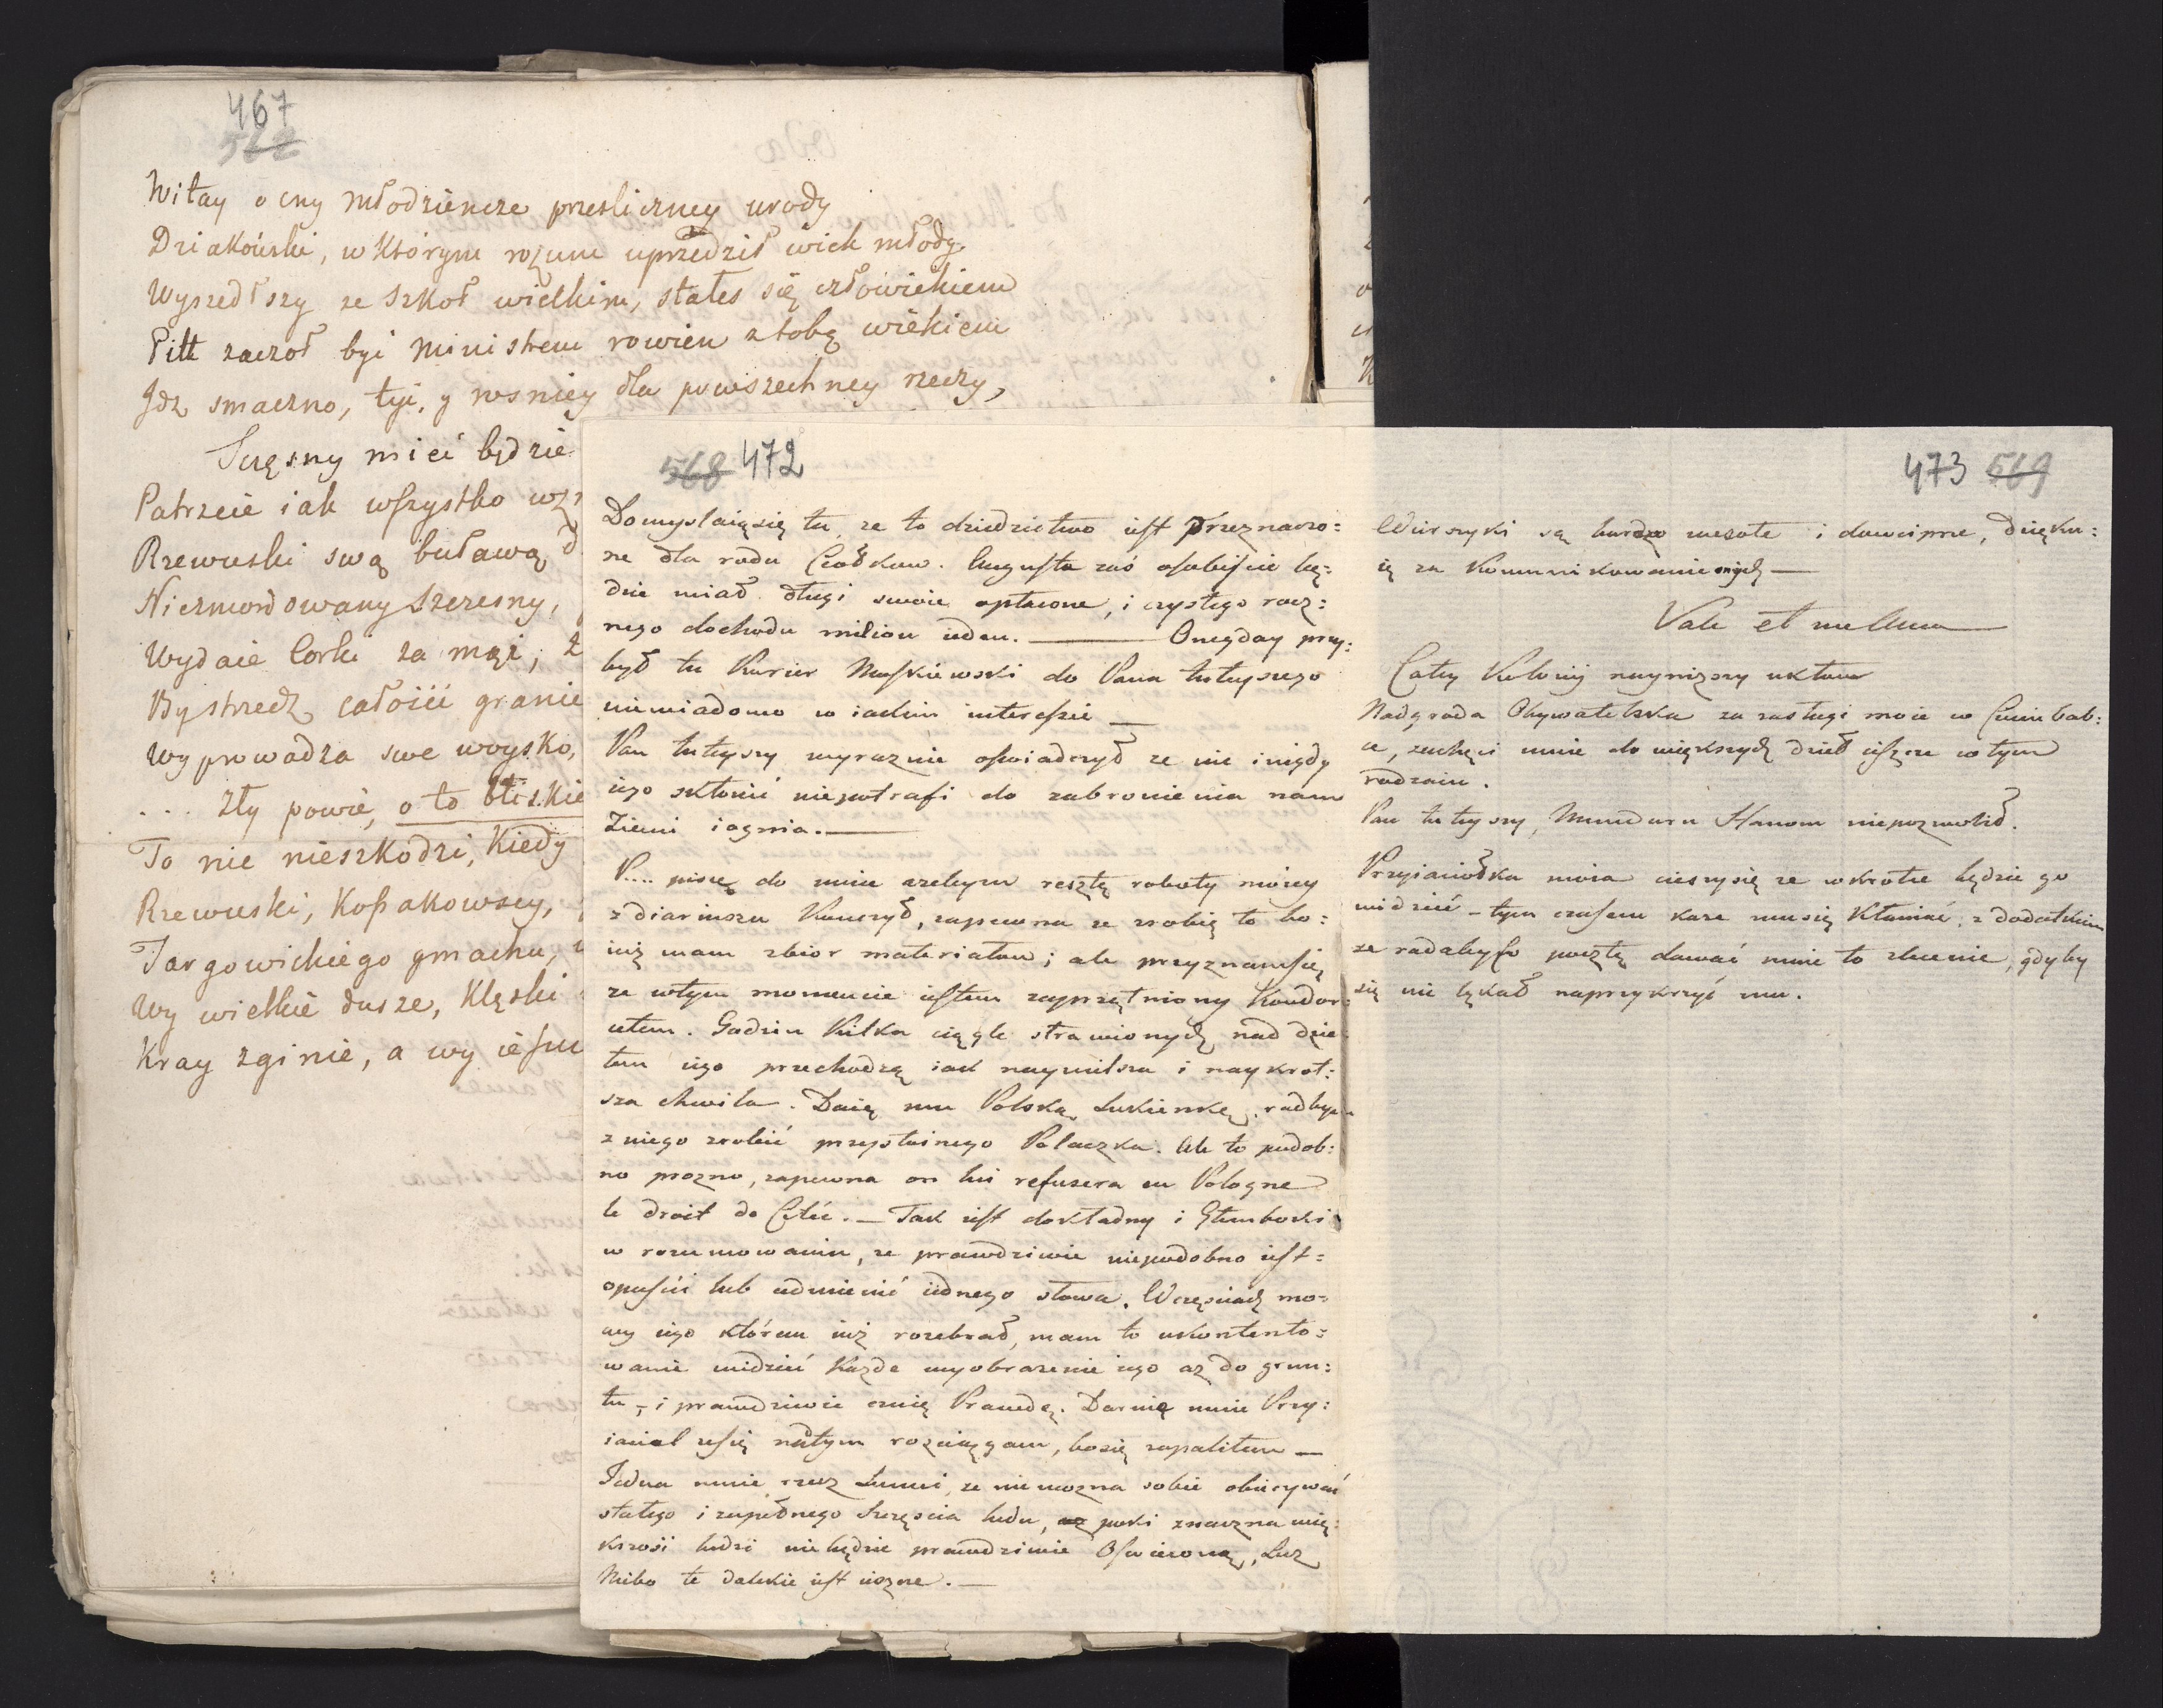 467
562
Witay o cny młodziencze presliczney urody
Dziakoński, w którym rozum uprzedził wiek młody
Wyszedłszy ze szkoł wielkim, stałes się człowiekiem
Pitt zaczoł być Ministrem rowien z tobą wiekiem
Jdz smaczno, tyi, y rosniey dla powszechney rzeczy,
Szczęsny mieć będzie
Patrzcie iak wszystko wz
Rzewuski swą buławą d
Niezmordowany Szczesny,
Wydaie Corki za mąż, z
Bystrzedz całości granic
Wyprowadza swe woysko,
... zły powie, oto bliskie
To nic nieszkodzi, Kiedy
Rzewuski, Kossakowscy,
Targowickiego gmachu,
Wy wielkie dusze, klęski
Kray zginie, a wy iesz
568 472
Domyslaią się tu, ze to dziedzictwo iest Przeznaczo:
ne dla rodu Ciołkow. Augusta zaś osobiście bę:
dzie miał długi swoie opłacone, i czystego rocz:
nego dochodu milion ieden. — Onegday przy:
był tu Kurier Moskiewski do Pana tuteyszego
niewiadomo w iakim interessie —
Pan tuteyszy wyraznie oswiadczył ze nic i nigdy
iego skłonić niepotrafi do zabronienia nam
Ziemi i ognia. —
P.... piszę do mnie azebym resztę roboty mőiey
z diariuszu Kończył, zapewna ze zrobię to bo:
iuż mam zbior materiałow; ale przyznam się
ze wtym momencie iestem zaprzątniony Kondor:
cetem. Godzin Kilka ciągle strawionych nad dzie
łem iego przechodzą iak naymilsza i naykrot:
sza chwila. Daię mu Polską Sukienkę, radbym
z niego zrobić przystoinego Polaczka. Ale to podob:
no prozno, zapewna on lui refusera en Pologne
le droit de Cité. — Tak iest dokładny i Głemboki
w rozumowaniu, ze prawdziwie niepodobno iest =
opuścić lub odmienić iednego słowa. W częściach mo:
wy iego którem iuż rozebrał, mam to ukontento:
wanie widzieć Kazde wyobrazenie iego az do grun:
tu, i prawdziwie cnię Prawdę. Daruię mnie Przy:
iaciel ze się nad tym rozciągam, bo się zapaliłem —
Jedna mnie rzecz Smuci, ze nie mozna sobie obiecywać
stałego i zupełnego Szczęscia ludu, poki znaczna wię:
kszość ludzi nie będzie prawdziwie Oswieconą, Lecz
Niebo te dalekie iest ieszcze. —
473 569
Wierszyki są bardzo wesołe i dowcipne, dzięku:
ię za Kommunikowanie onych —
Vale et me Ama
Całey Kolonij nayniższy ukłon
Nadgroda Obywatelska za zasługi moie w Ciuciubab:
ce, zachęci mnie do większych dzieł ieszcze wtym
rodzaiu.
Pan tuteyszy, Munduru Stanom niepozwolił.
Przyiaciołka moia cieszy się ze wkrotce będzie go
widzieć – tym czasem kaze mu się Kłaniać, z dodatkiem
ze radaby co pocztę dawać mnie to zlecenie, gdyby
się nie lękał naprzykrzyć mu.